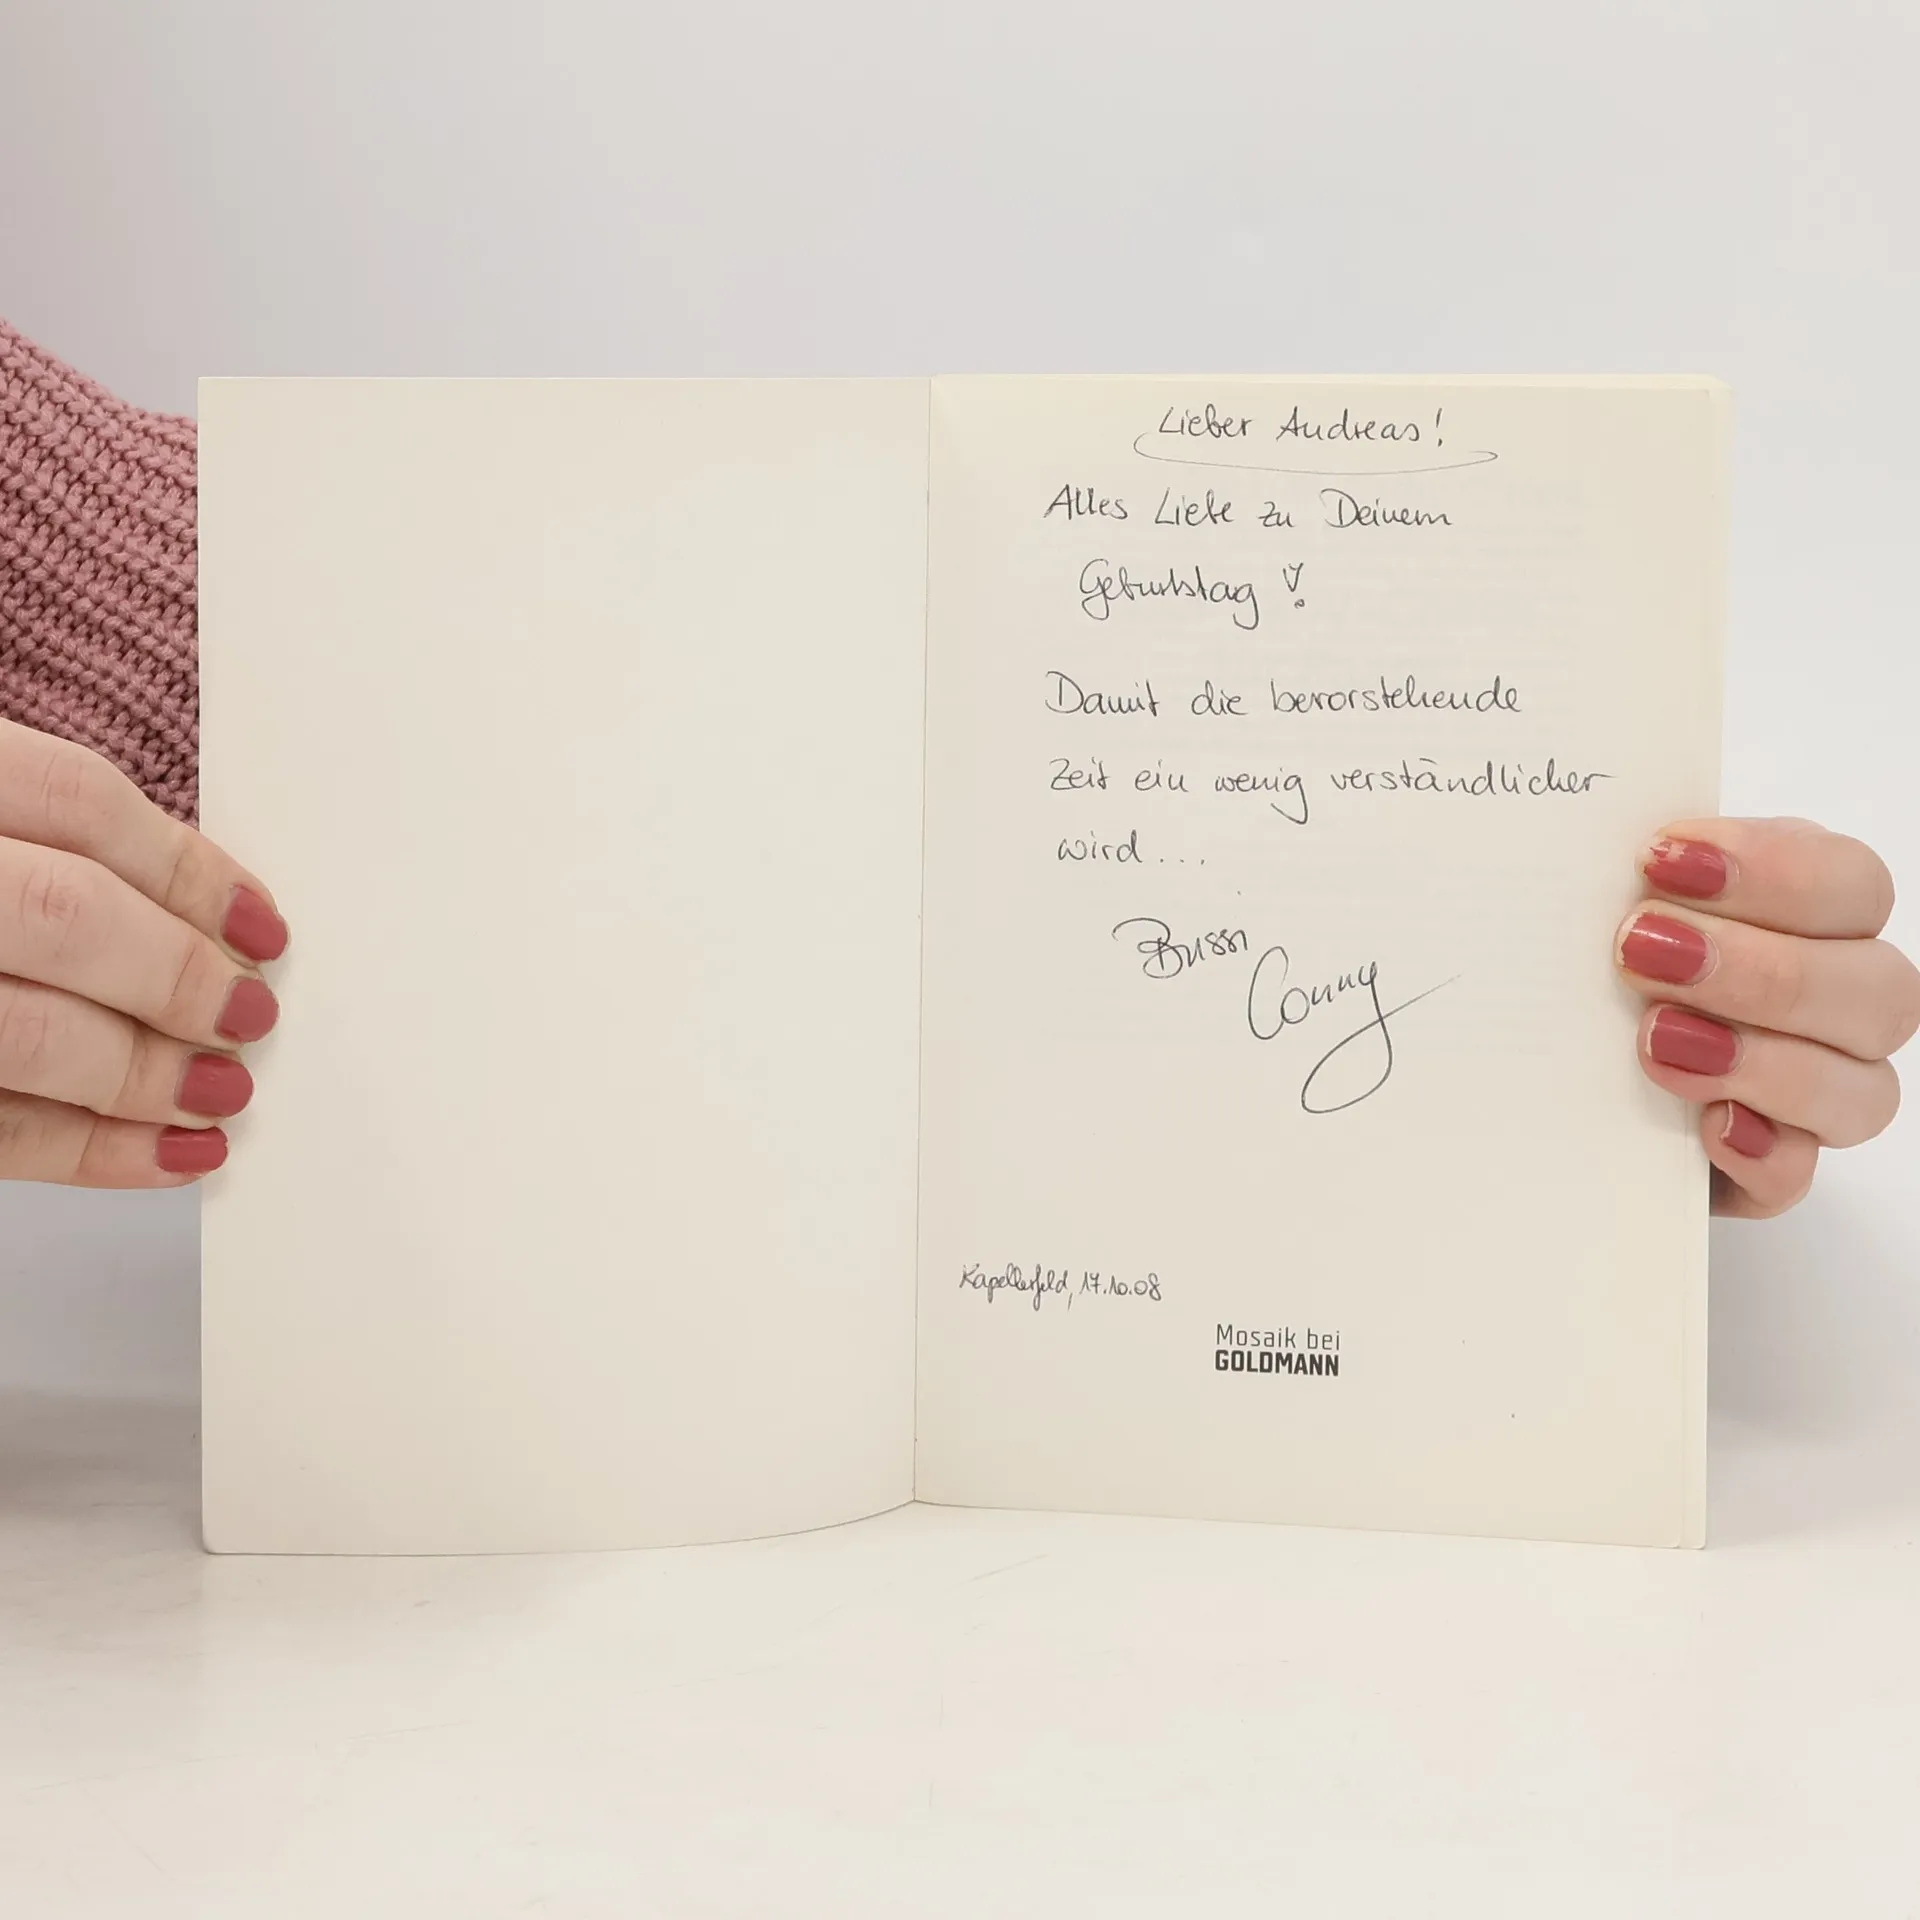 Lieber Andreas!
Alles Liebe zu Deinem
Geburtstag!
Damit die bevorstehende
Zeit ein wenig verständlicher
wird...
Bussi
Conny
Kapellerfeld, 17.10.08
Mosaik bei
GOLDMANN